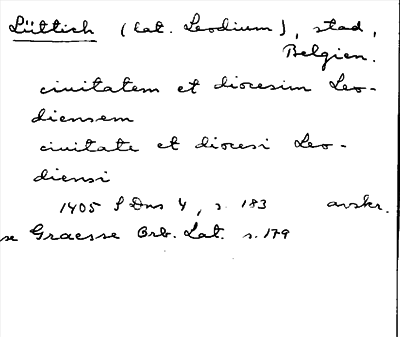 Lüttich (lat. Leodium), stad,
Belgien.
civitatem et diocesim Leo-
diensem
civitate et diocesi Leo-
diensi
1405 S Dns 4, s. 183 avskr.
se Graesse Orb. Lat. s. 179